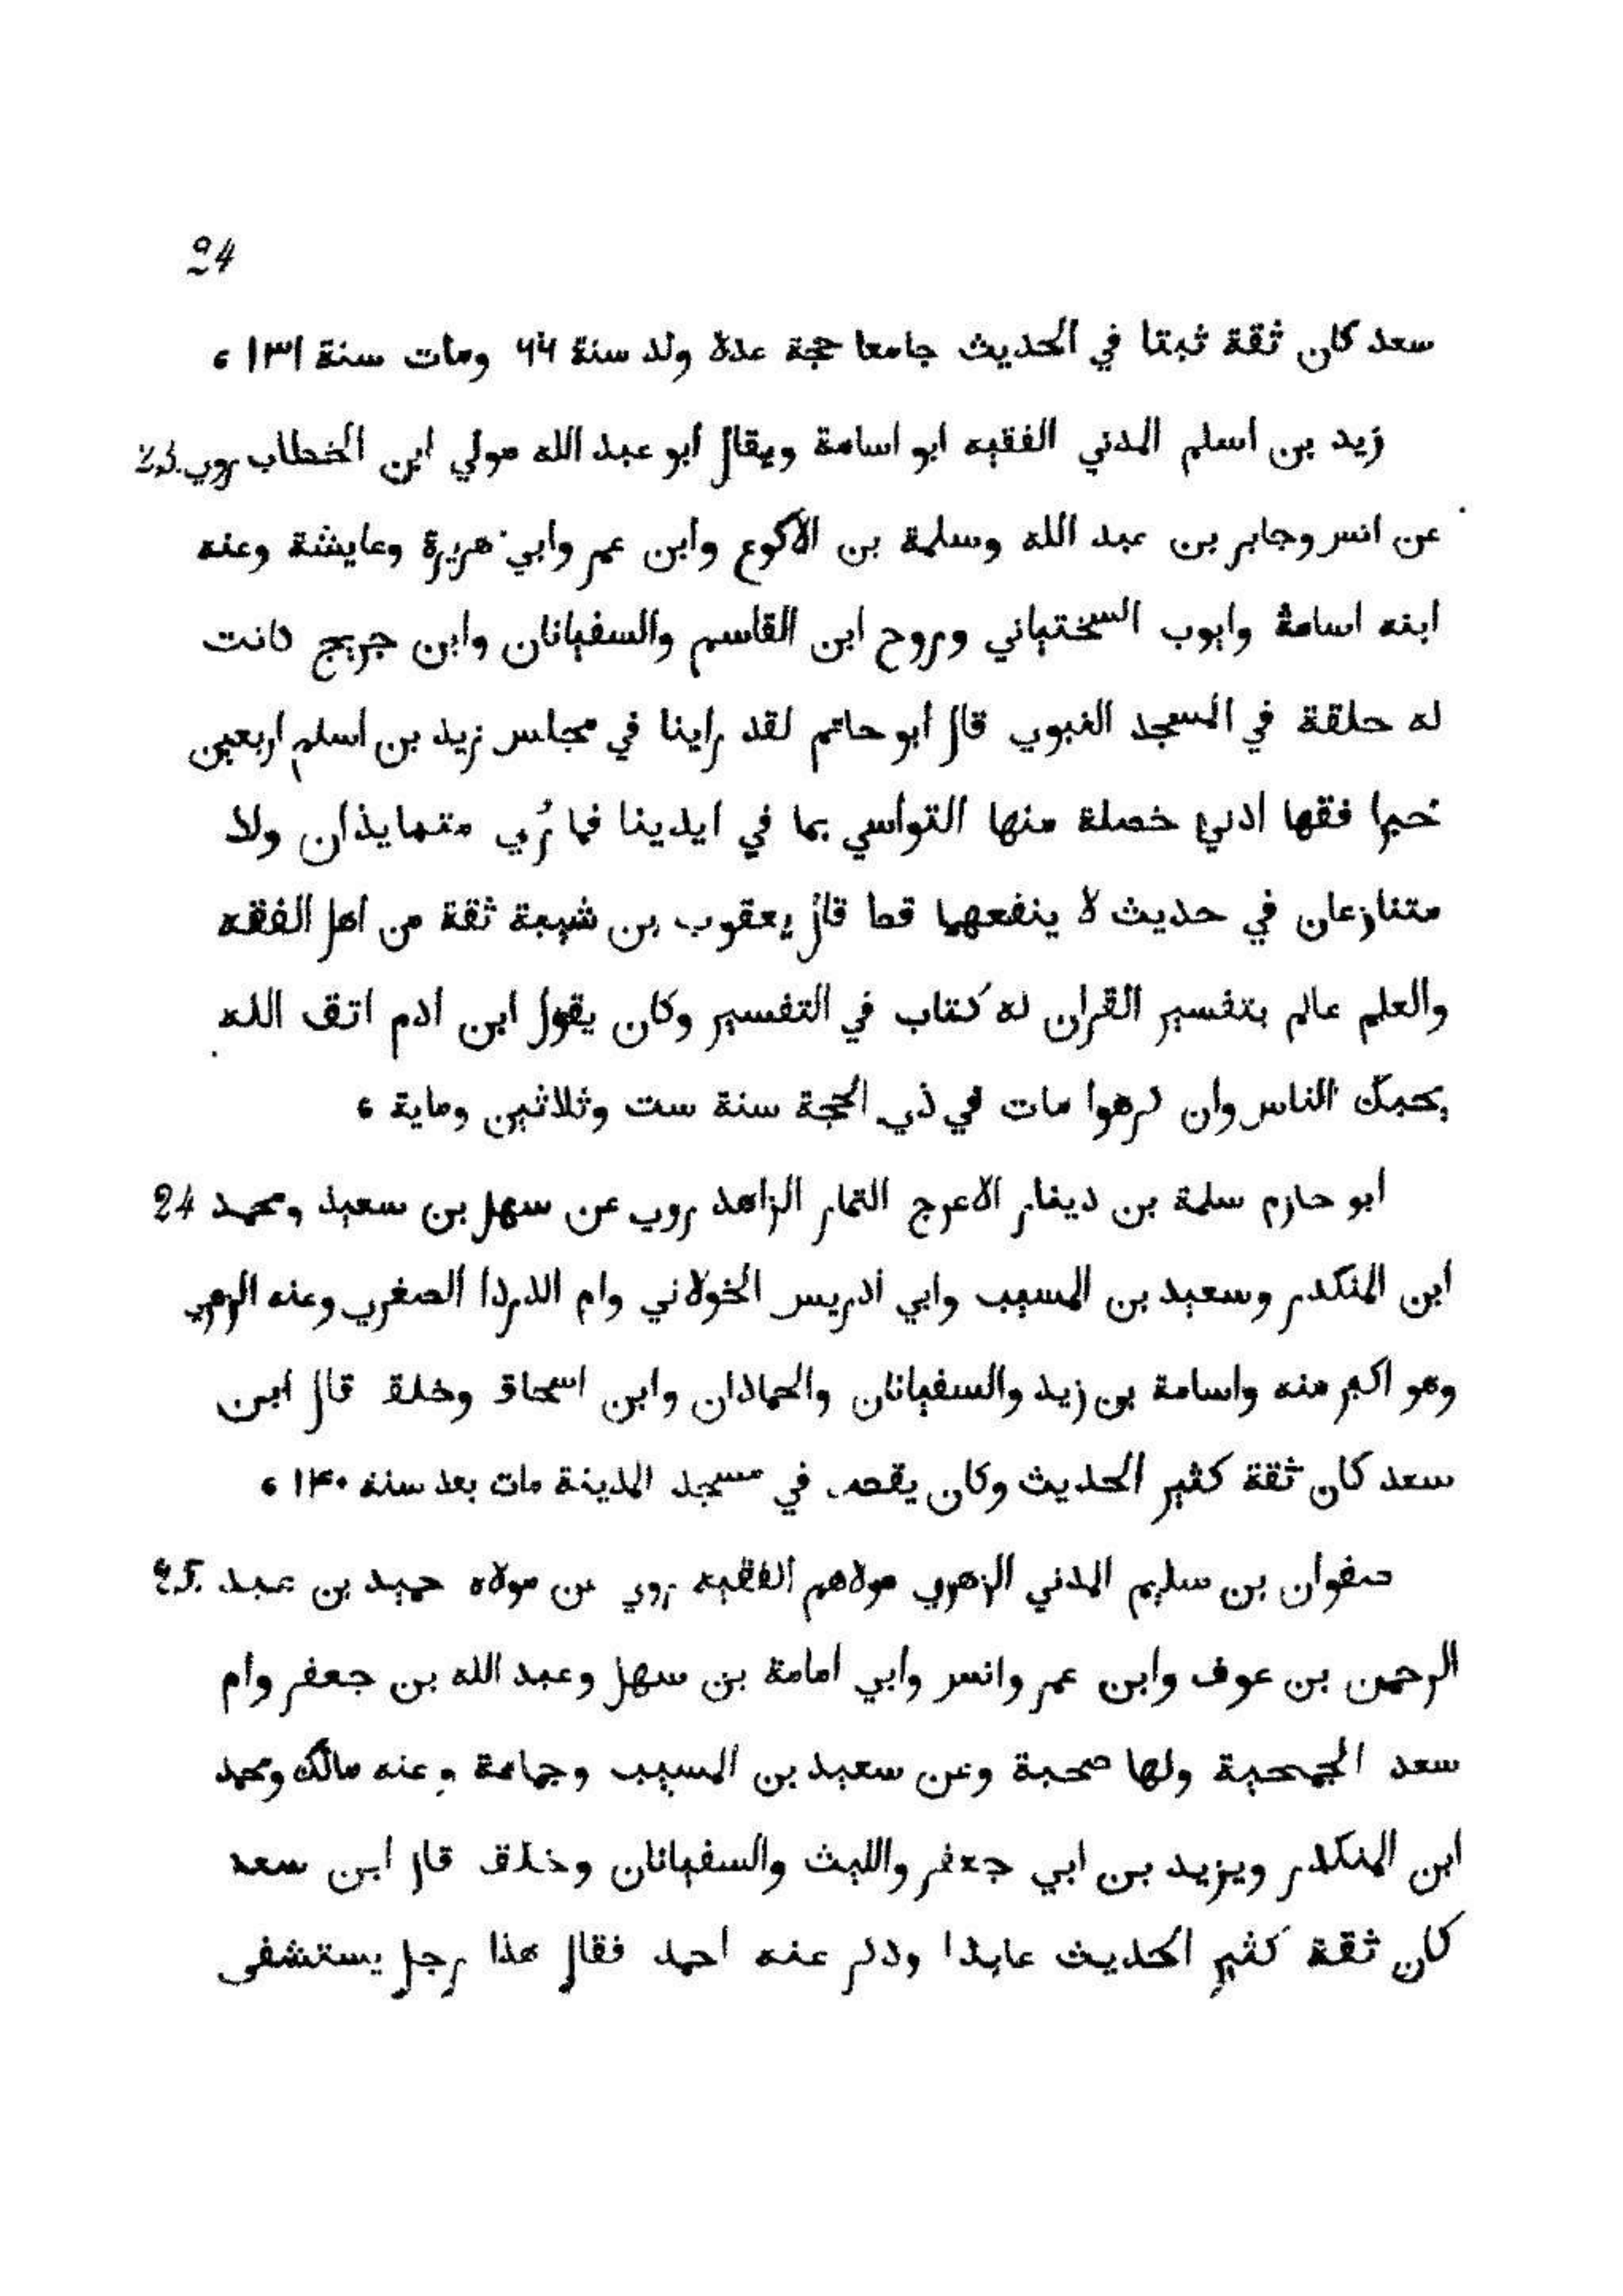 24
سعد كان ثقة ثبتا في الحديث جامعا حجة عدة ولد سنة ٤٤ ومات سنة ١٣١ ،
زيد بن اسلم المدني الفقيه ابو اسامة ويقال ابو عبد الله مولي ابن الخطاب روي 23
عن انس وجابر بن عبد الله وسلمة بن الاكوع وابن عمر وابي هريرة وعايشة وعنه
ابنه اسامة وايوب السختياني وروح ابن القاسم والسفيانان وابن جريج كانت
له حلقة في المسجد النبوي قال ابو حاتم لقد راينا في مجلس زيد بن اسلم اربعين
حبرا فقها ادني خصلة منها التواسي بما في ايدينا فما رُي ولا
متنازعان في حديث لا ينفعهما قط قال يعقوب بن شيبة ثقة من اهل الفقه
والعلم عالم بتفسير القران له كتاب في التفسير وكان يقول ابن ادم اتق الله
يحبك الناس وان كرهوا مات في ذي الحجة سنة ست وثلاثين وماية ،
ابو حازم سلمة بن دينار الاعرج التمار الزاهد روي عن سهل بن سعيد ومحمد 24
ابن المنكدر وسعيد بن المسيب وابي ادريس الخولاني وام الدردا الصغري وعنه الزهري
وهو اكبر منه واسامة بن زيد والسفيانان والحمادان وابن اسحاق وخلق قال ابن
سعد كان ثقة كثير الحديث وكان يقص في مسجد المدينة مات بعد سنة ١٤٠ ،
صفوان بن سليم المدني الزهري مولاهم الفقيه روي عن مولاه حميد بن عبد 25
الرحمن بن عوف وابن عمر وانس وابي امامة بن سهل وعبد الله بن جعفر وام
سعد الجمحية ولها صحبة وعن سعيد بن المسيب وجماعة وعنه مالك ومحمد
ابن المنكدر ويزيد بن ابي جعفر والليث والسفيانان وخلق قال ابن سعد
كان ثقة كثير الحديث عابدا وذكر عنه احمد فقال هذا رجل يستشفى